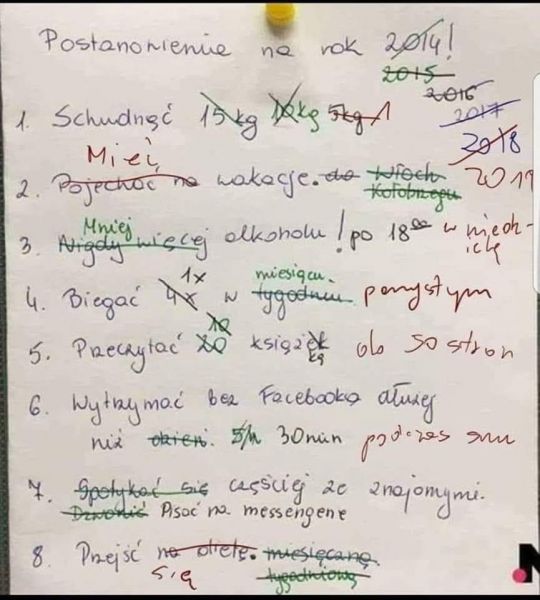 Postanowienie na rok 2014!
2015
2016
2017
2018
2019
1. Schudnąć 15kg 10kg 5kg 1
Mieć
2. Pojechać na wakacje. do Włoch
Kołobrzegu
Mniej
3. Nigdy więcej alkoholu! po 18⁰⁰ w niedzielę
1x miesiącu.
4. Biegać 4x w tygodniu pomysłem
10
5. Przeczytać 20 książek kę do 50 stron
6. Wytrzymać bez Facebooka dłużej
niż dzień. 5h 30min podczas snu
7. Spotykać się częściej ze znajomymi.
Dzwonić Pisać na messengerze
8. Przejść na dietę. miesięczną.
się tygodniową
N